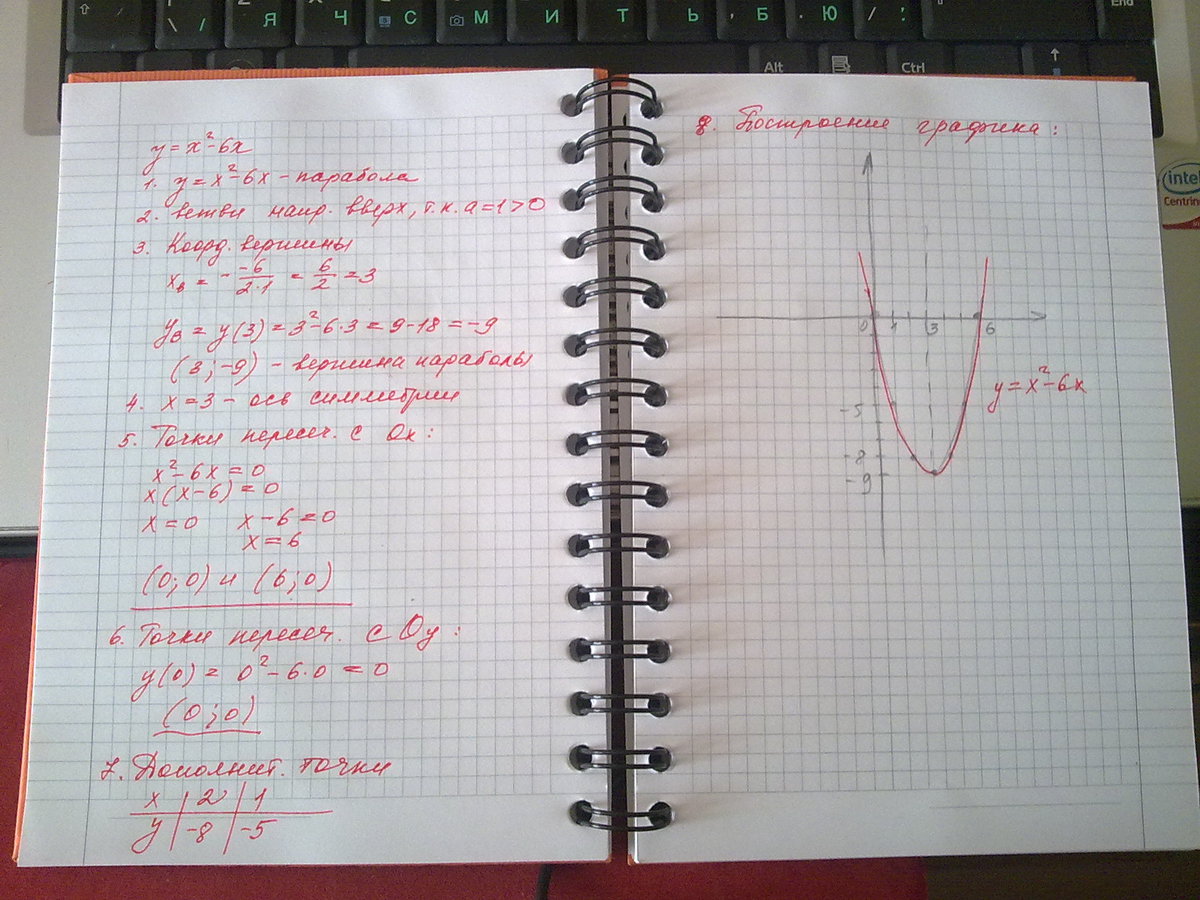 \ / Я Ч С М И Т Ь , Б . Ю / ;
End
Alt Ctrl
intel
Centrino
y = x²-6x
1. y = x²-6x - парабола
2. ветви напр. вверх, т.к. a=1>0
3. Коорд. вершины
xв = - -6/2·1 = 6/2 = 3
yв = y(3) = 3²-6·3 = 9-18 = -9
(3; -9) - вершина параболы
4. x = 3 - ось симметрии
5. Точки пересеч. с Ox:
x²-6x = 0
x(x-6) = 0
x = 0 x-6 = 0
x = 6
(0;0) и (6;0)
6. Точки пересеч. с Oy:
y(0) = 0²-6·0 = 0
(0;0)
7. Дополнит. точки
x | 2 | 1
y | -8 | -5
8. Построение графика:
0 1 3 6
y = x²-6x
-5
-8
-9